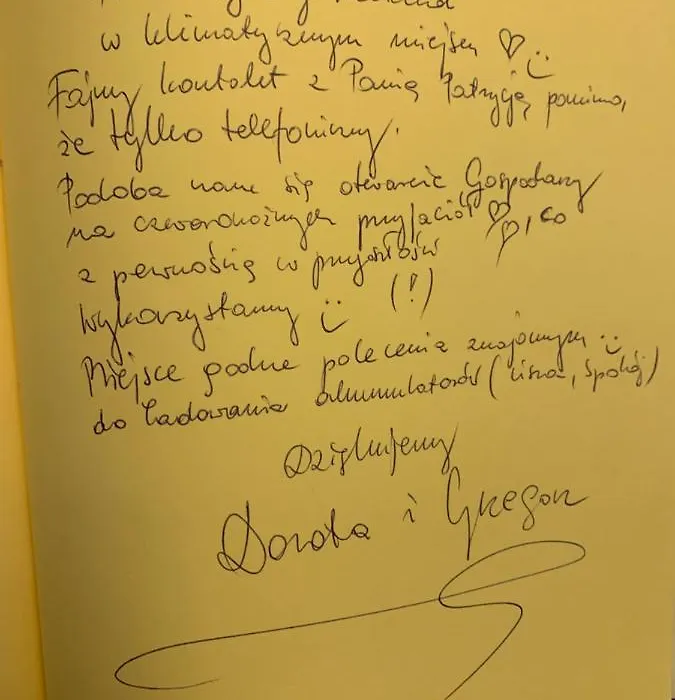 w klimatycznym miejscu ♡ :)
Fajny kontakt z Panią Patrycją pomimo,
że tylko telefoniczny.
Podoba nam się otwarcie Gospodarzy
na czworonożnych przyjaciół ♡♡, co
z pewnością w przyszłości
wykorzystamy :) (!)
Miejsce godne polecenia znajomym :)
do ładowania akumulatorów (cisza, spokój)
Dziękujemy
Dorota i Grzegorz